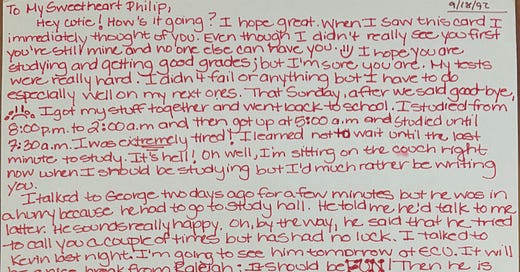 To My Sweetheart Philip,
9/18/92
Hey cutie! How's it going? I hope great. When I saw this card I
immediately thought of you. Even though I didn't really see you first
you're still mine and no one else can have you. I hope you are
studying and getting good grades; but I'm sure you are. My tests
were really hard. I didn't fail or anything but I have to do
especially well on my next ones. That Sunday, after we said good-bye,
I got my stuff together and went back to school. I studied from
8:00p.m. to 2:00a.m and then got up at 5:00 a.m and studied until
7:30a.m. I was extremely tired! I learned not to wait until the last
minute to study. It's hell! Oh well, I'm sitting on the couch right
now when I should be studying but I'd much rather be writing
you.
I talked to George two days ago for a few minutes but he was in
a hurry because he had to go to study hall. He told me he'd talk to me
latter. He sounds really happy. Oh, by the way, he said that he tried
to call you a couple of times but has had no luck. I talked to
Kevin last night. I'm going to see him tomorrow at ECU. It will
be a nice break from Raleigh. It should be FUN! Then he is